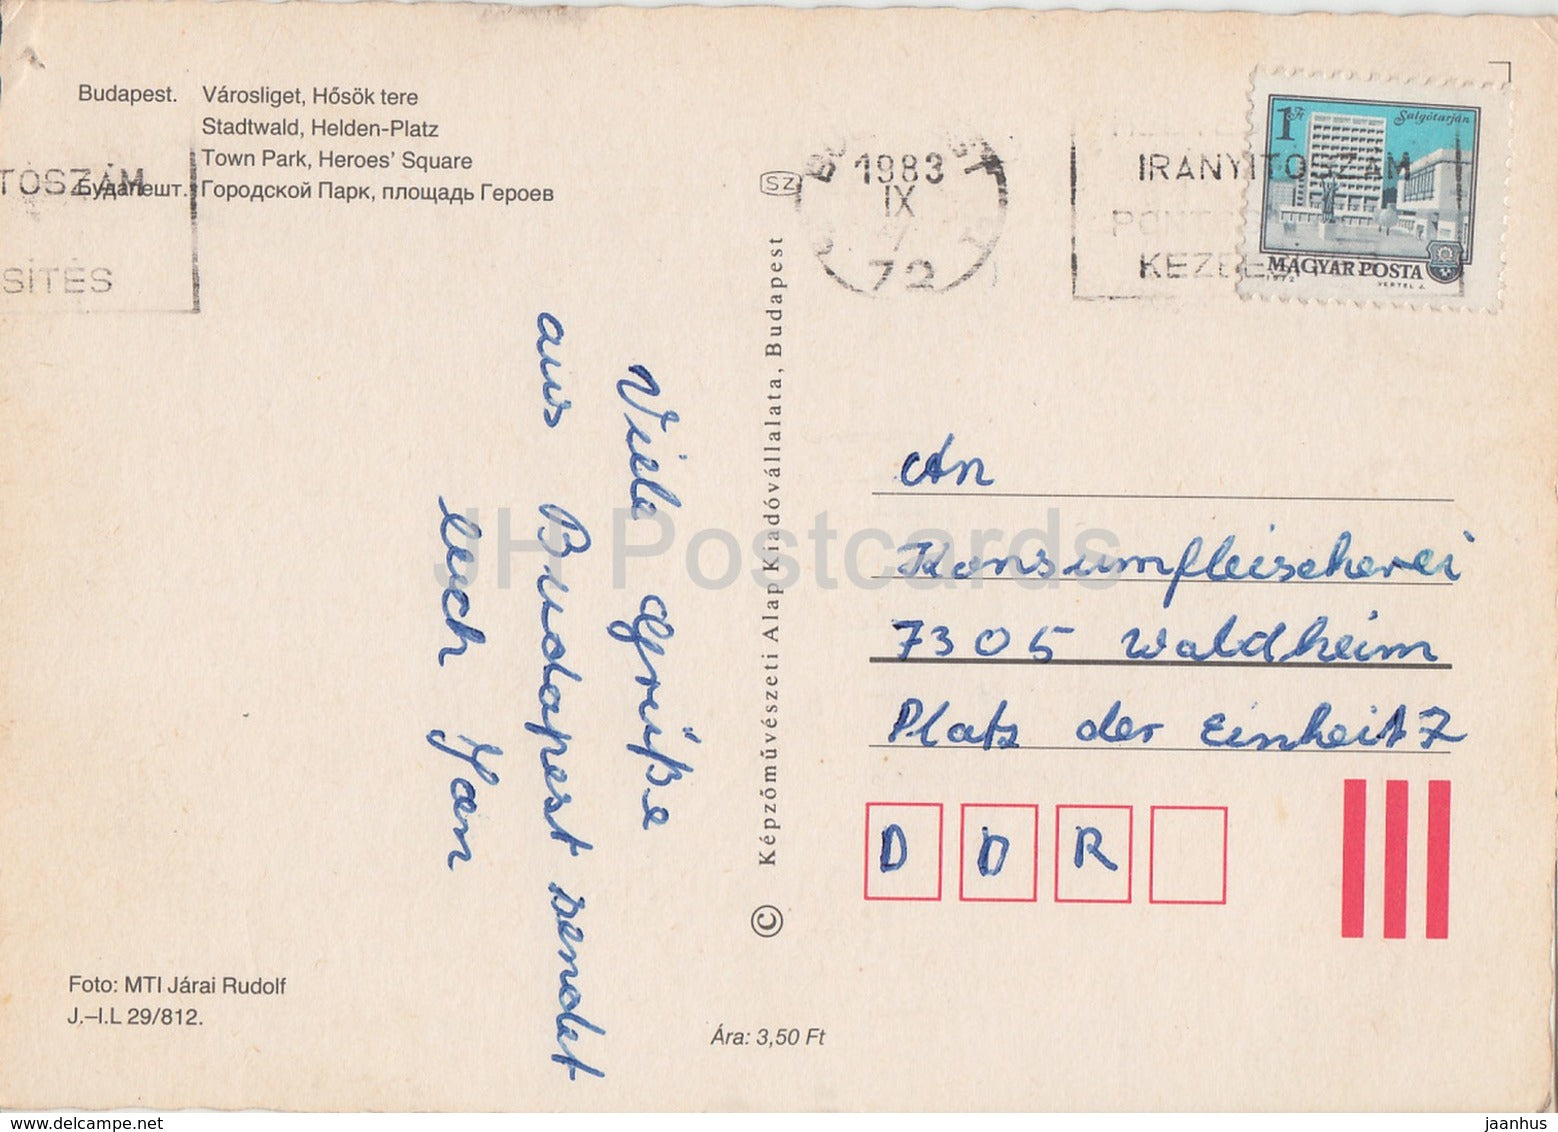 Budapest. Városliget, Hősök tere
Stadtwald, Helden-Platz
Town Park, Heroes' Square
Будапешт. Городской Парк, площадь Героев
TOSZÁM
SÍTÉS
SZ
1983
IX
72
IRÁNYÍTÓSZÁM
1 Ft
Salgótarján
MAGYAR POSTA
1972
VERTEL J.
Viele Grüße
aus Budapest sendet
euch Jan
Képzőművészeti Alap Kiadóvállalata, Budapest
©
An
Konsumfleischerei
7305 Waldheim
Platz der Einheit 7
D D R
Foto: MTI Járai Rudolf
J.–I.L 29/812.
Ára: 3,50 Ft
JH Postcards
jaanhus